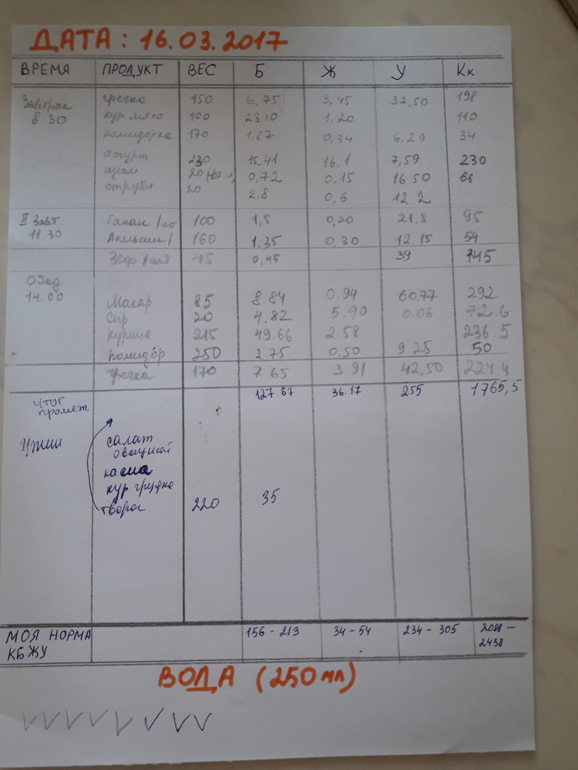 ДАТА: 16.03.2017
ВРЕМЯ ПРОДУКТ ВЕС Б Ж У Кк
Завтрак гречка 150 6,75 3,45 37,50 198
8.30 кур мясо 100 23.10 1,20 110
помидорка 170 1.87 0,34 6.29 34
йогурт 230 15.41 16.1 7,59 230
изюм 20 0,72 0,15 16.50 66
отруби 20 2.8 0,6 12.2
II Завт Банан 100 1,5 0,20 21,8 95
11.30 Апельсин 160 1,35 0,30 12.15 54
0,45 39 145
Обед
14.00 Макар 85 8.84 0,94 60,77 292
Сыр 20 4.82 5.90 0.06 72.6
Курица 215 49.66 2.58 236.5
помидор 250 2.75 0,50 9.25 50
гречка 170 7.65 3.91 42,50 224.4
итог 127.67 36.17 255 1765,5
промет.
Ужин салат
овощной
кур грудка
творог 220 35
МОЯ НОРМА 156-213 34-54 234-305
КБЖУ 2458
ВОДА (250 мл)